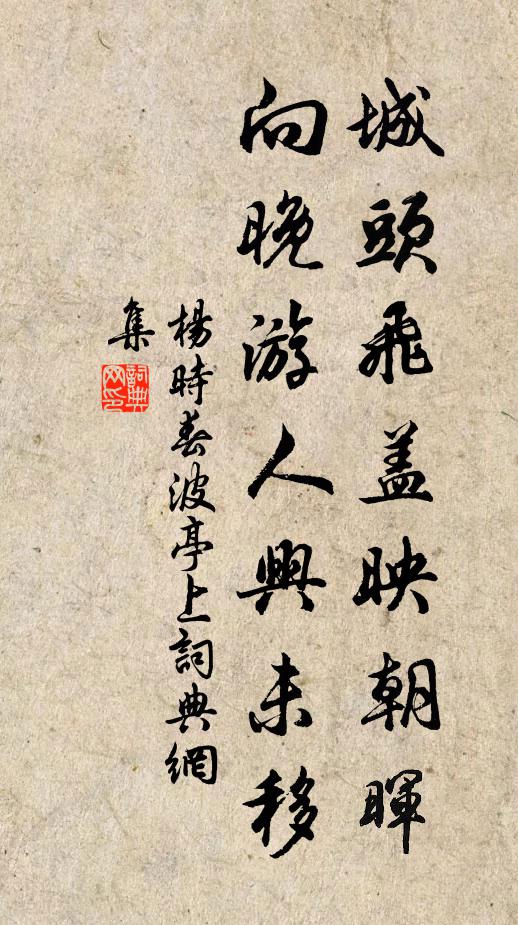 城頭飛蓋映朝暉
向晚游人興未移
楊時春波亭上詞典網
集
詞典網印